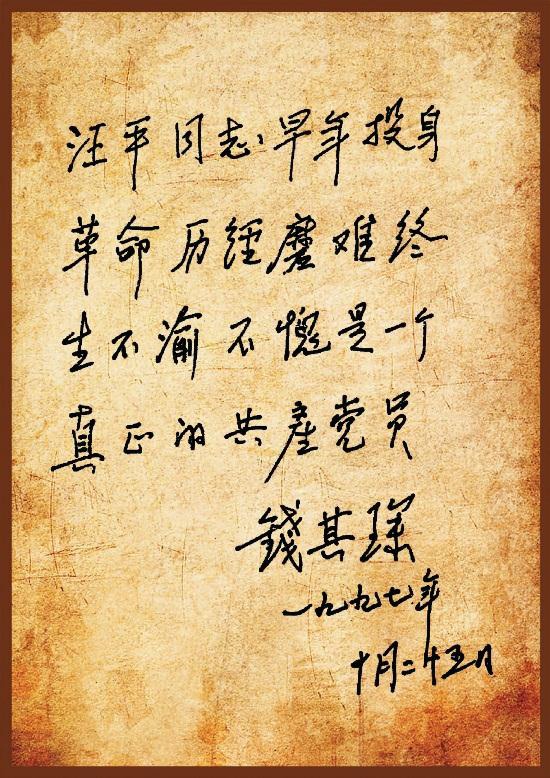 汪平同志早年投身
革命历经磨难终
生不渝不愧是一个
真正的共產党员
錢其琛
一九九七年
十月二十五日